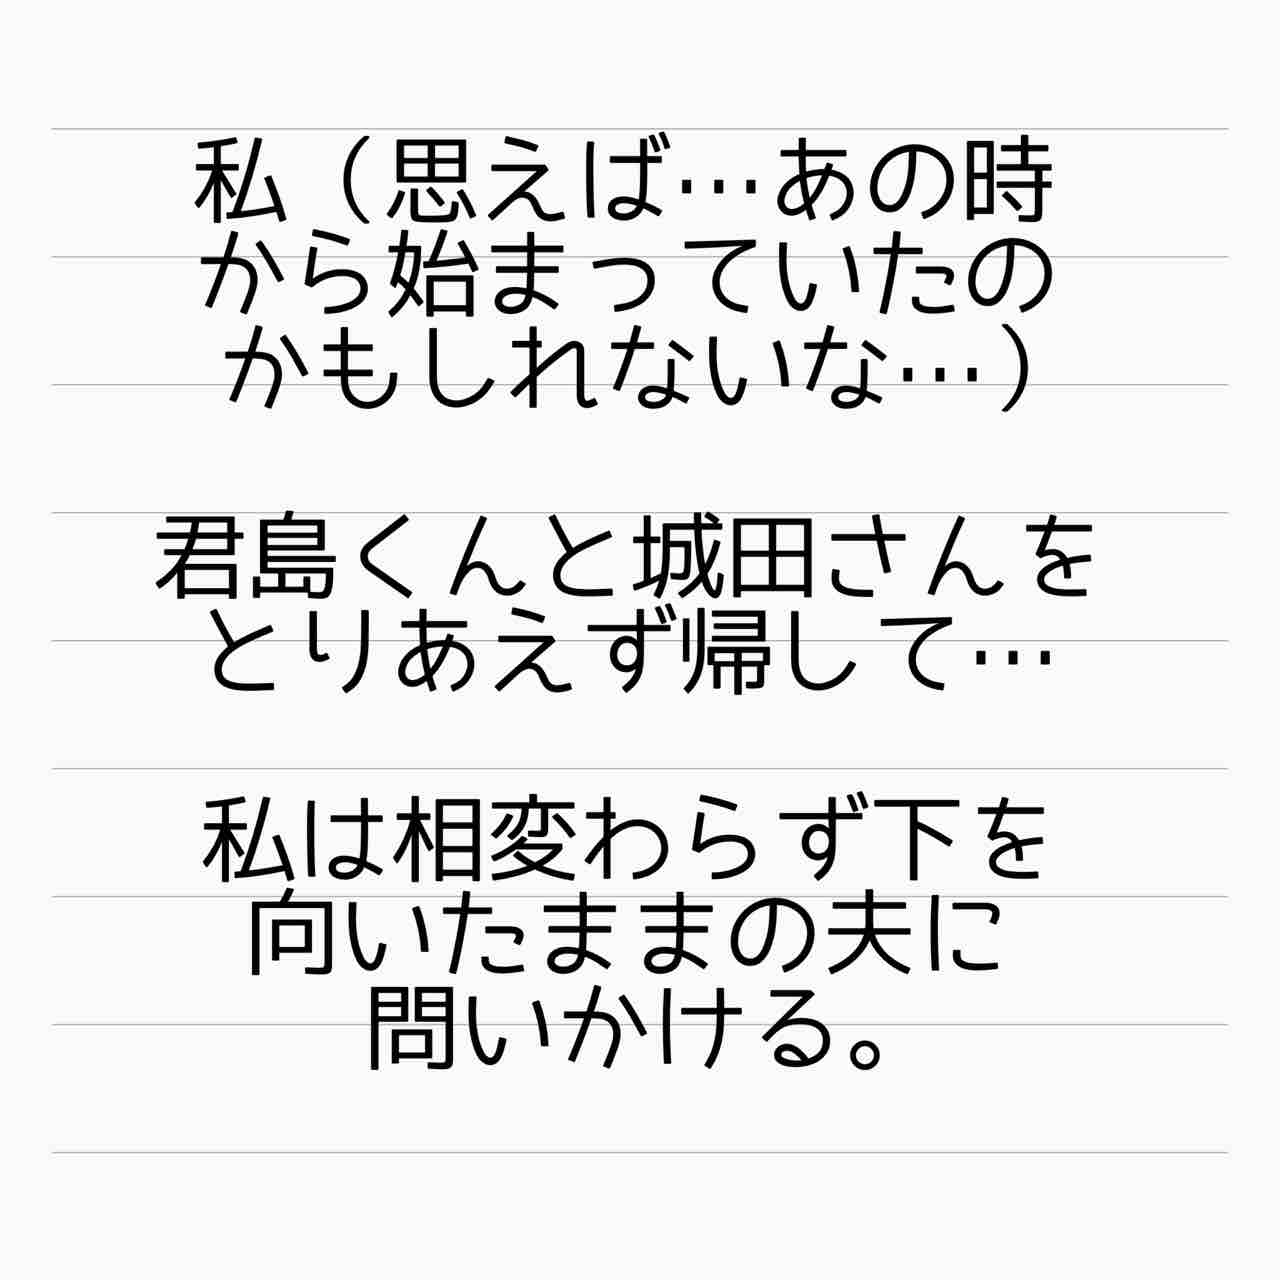 私（思えば…あの時
から始まっていたの
かもしれないな…）
君島くんと城田さんを
とりあえず帰して…
私は相変わらず下を
向いたままの夫に
問いかける。